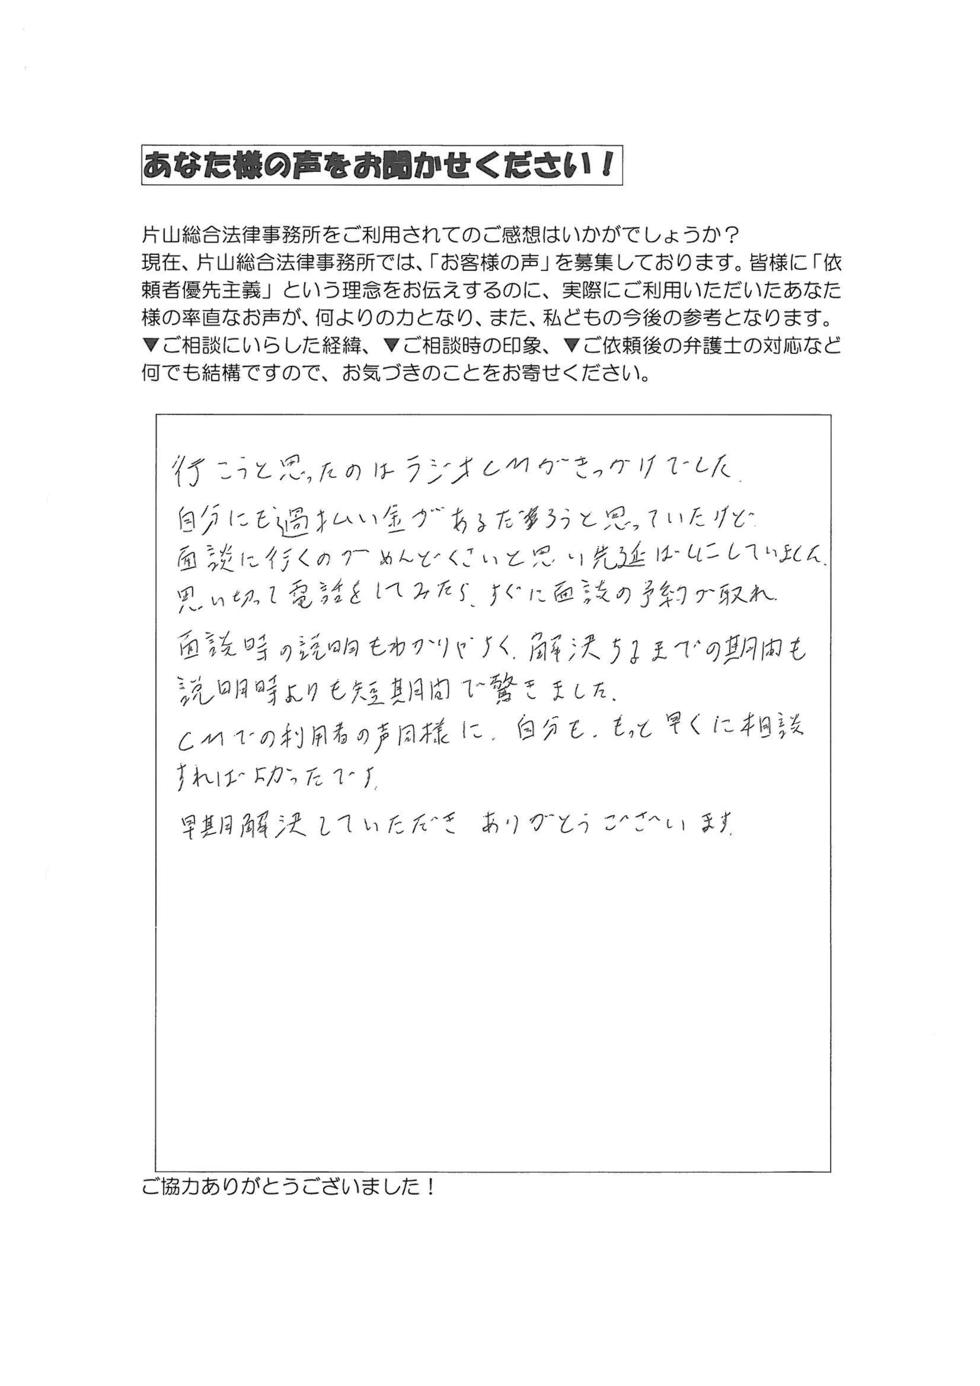 あなた様の声をお聞かせください！
片山総合法律事務所をご利用されてのご感想はいかがでしょうか？
現在、片山総合法律事務所では、「お客様の声」を募集しております。皆様に「依
頼者優先主義」という理念をお伝えするのに、実際にご利用いただいたあなた
様の率直なお声が、何よりの力となり、また、私どもの今後の参考となります。
▼ご相談にいらした経緯、▼ご相談時の印象、▼ご依頼後の弁護士の対応など
何でも結構ですので、お気づきのことをお寄せください。
行こうと思ったのはラジオCMがきっかけでした.
自分にも過払い金があるだろうと思っていたけど
面談に行くのがめんどくさいと思い先延ばしにしていました.
思い切って電話をしてみたら、すぐに面談の予約が取れ
面談時の説明もわかりやすく、解決するまでの期間も
説明時よりも短期間で驚きました.
CMでの利用者の声同様に、自分も、もっと早くに相談
すればよかったです.
早期解決していただき ありがとうございます.
ご協力ありがとうございました！